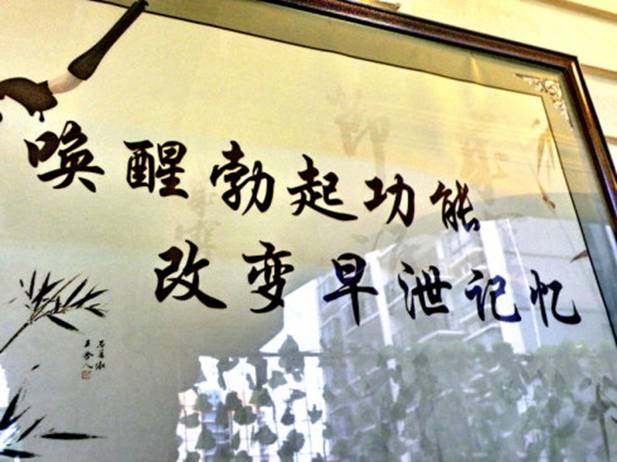 唤醒勃起功能
改变早泄记忆